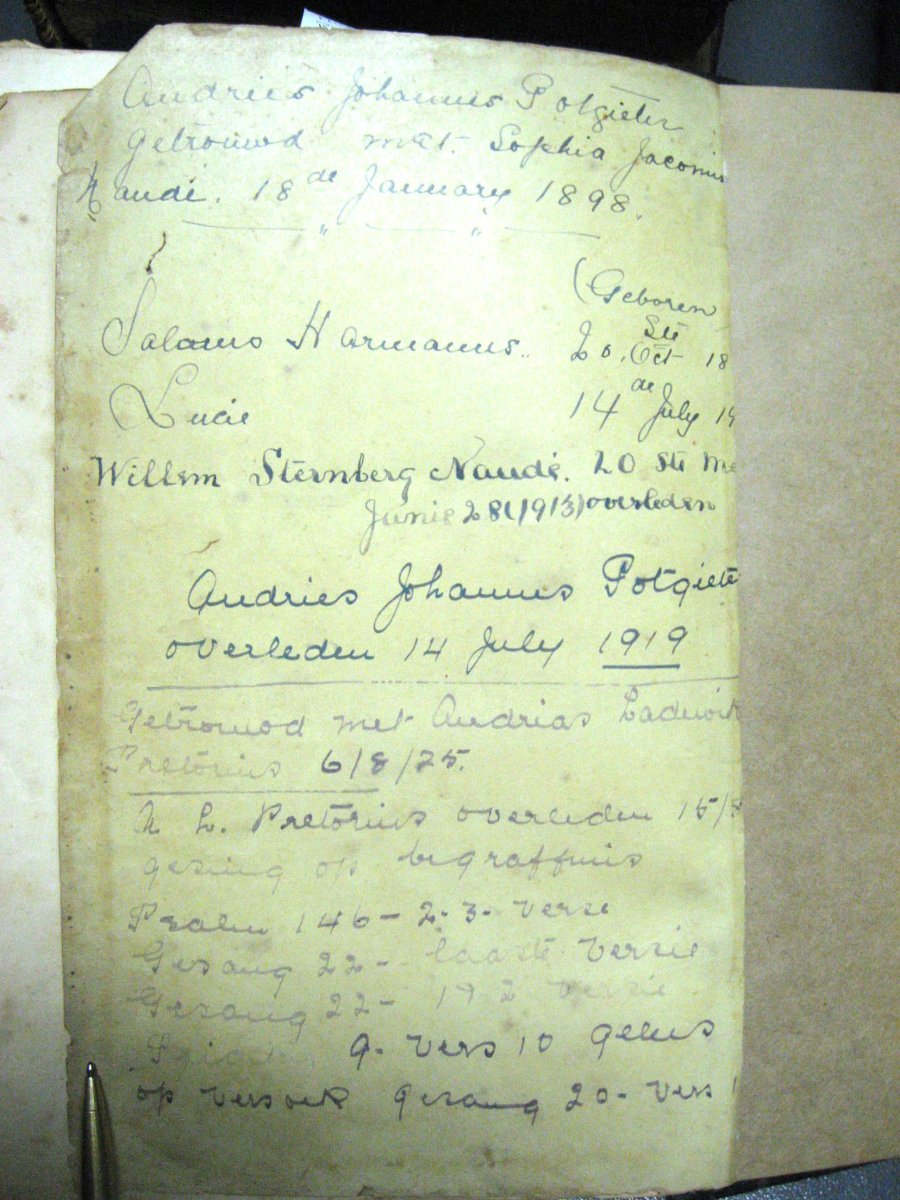 Andries Johannes Potgieter
getrouwd met. Sophia Jacomi
Naudé. 18de January 1898.
(Geboren
Salamo Harmanus.. 20.ste Oct 18
Lucie 14de July 19
Willem Sternberg Naudé. 20 ste Me
Junie 28 (1913) overleden
Andries Johannes Potgiete
overleden 14 July 1919
Getrouwd met Andrias Ladewik
Pretorius 6/8/25.
A L. Pretorius overleden 15/8
gesing op begraffnis
Psalm 146 - 2-3- verse
Gesang 22- laaste versie
Gesang 22- 1 2 versie
9. vers 10 gelees
op versoek gesang 20- vers 1